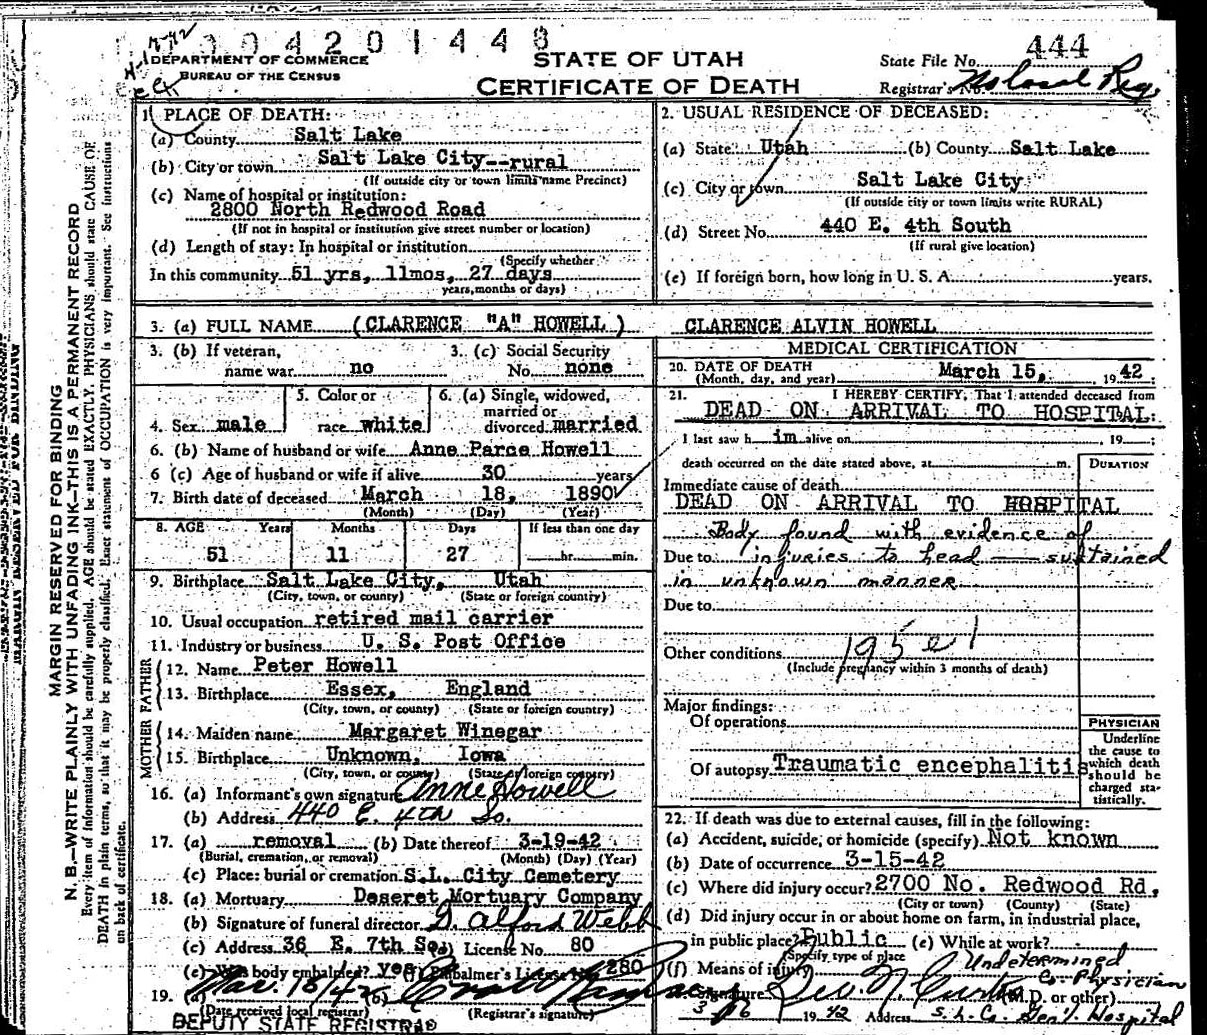 004201448
DEPARTMENT OF COMMERCE
BUREAU OF THE CENSUS
STATE OF UTAH
CERTIFICATE OF DEATH
State File No. 444
Registrar's No. No Local Reg.
MARGIN RESERVED FOR BINDING
N. B.—WRITE PLAINLY WITH UNFADING INK—THIS IS A PERMANENT RECORD
Every item of information should be carefully supplied. AGE should be stated EXACTLY. PHYSICIANS should state CAUSE OF
DEATH in plain terms, so that it may be properly classified. Exact statement of OCCUPATION is very important. See instructions
on back of certificate.
1. PLACE OF DEATH:
(a) County Salt Lake
(b) City or town Salt Lake City--rural
(If outside city or town limits name Precinct)
(c) Name of hospital or institution:
2800 North Redwood Road
(If not in hospital or institution give street number or location)
(d) Length of stay: In hospital or institution
(Specify whether
In this community 51 yrs, 11mos, 27 days
years, months or days)
2. USUAL RESIDENCE OF DECEASED:
(a) State Utah (b) County Salt Lake
(c) City or town Salt Lake City
(If outside city or town limits write RURAL)
(d) Street No. 440 E. 4th South
(If rural give location)
(e) If foreign born, how long in U. S. A. years.
3. (a) FULL NAME (CLARENCE "A" HOWELL) CLARENCE ALVIN HOWELL
3. (b) If veteran,
name war no
3. (c) Social Security
No. none
4. Sex male
5. Color or
race white
6. (a) Single, widowed,
married or
divorced married
6. (b) Name of husband or wife Anne Parce Howell
6 (c) Age of husband or wife if alive 30 years
7. Birth date of deceased March 18, 1890
(Month) (Day) (Year)
8. AGE Years Months Days If less than one day
51 11 27 hr. min.
9. Birthplace Salt Lake City, Utah
(City, town, or county) (State or foreign country)
10. Usual occupation retired mail carrier
11. Industry or business U. S. Post Office
FATHER
12. Name Peter Howell
13. Birthplace Essex, England
(City, town, or county) (State or foreign country)
MOTHER
14. Maiden name Margaret Winegar
15. Birthplace Unknown, Iowa
(City, town, or county) (State or foreign country)
16. (a) Informant's own signature Anne Howell
(b) Address 440 E. 4th So.
17. (a) removal (b) Date thereof 3-19-42
(Burial, cremation, or removal) (Month) (Day) (Year)
(c) Place: burial or cremation S.L. City Cemetery
18. (a) Mortuary Deseret Mortuary Company
(b) Signature of funeral director D. Alford Webb
(c) Address 36 E. 7th So. License No. 80
(e) Was body embalmed? yes (f) Embalmer's License No. 280
19. (a) Mar. 18/42 (b)
(Date received local registrar) (Registrar's signature)
DEPUTY STATE REGISTRAR
MEDICAL CERTIFICATION
20. DATE OF DEATH
(Month, day, and year) March 15, 1942
21. I HEREBY CERTIFY, That I attended deceased from
DEAD ON ARRIVAL TO HOSPITAL
I last saw h im alive on , 19 ;
death occurred on the date stated above, at m.
DURATION
Immediate cause of death
DEAD ON ARRIVAL TO HOSPITAL
Body found with evidence of
Due to injuries to head — sustained
in unknown manner
Due to
Other conditions
(Include pregnancy within 3 months of death)
Major findings:
Of operations
Of autopsy Traumatic encephalitis
PHYSICIAN
Underline
the cause to
which death
should be
charged sta-
tistically.
22. If death was due to external causes, fill in the following:
(a) Accident, suicide, or homicide (specify) Not known
(b) Date of occurrence 3-15-42
(c) Where did injury occur? 2700 No. Redwood Rd,
(City or town) (County) (State)
(d) Did injury occur in or about home on farm, in industrial place,
in public place? Public (e) While at work?
(Specify type of place
(f) Means of injury Undetermined
Co. Physician
23. Signature Geo. N. Curtis (M.D. or other)
1942 Address S. L. Co. Gen'l Hospital